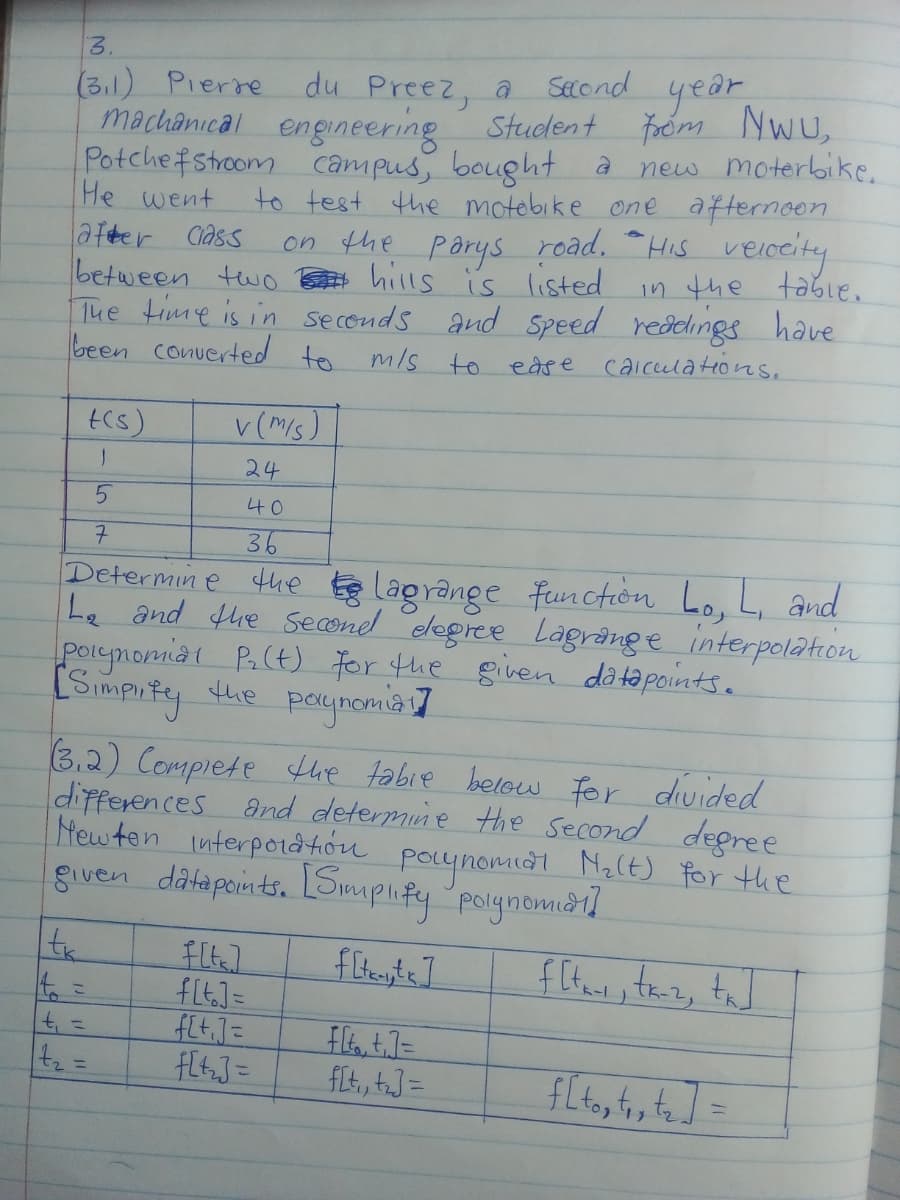 3.
(3,1) Pierre du Preez, a Second year
machanical engineering Student from NWU,
Potchefstroom campus, bought a new moterbike.
He went to test the motobike one afternoon
after class on the parys road. His velocity
between two hills is listed in the table.
The time is in seconds and speed readings have
been converted to m/s to ease calculations.
t(s) v(m/s)
1 24
5 40
7 36
Determine the lagrange function L₀, L₁ and
L₂ and the second degree Lagrange interpolation
polynomial P₂(t) for the given datapoints.
[Simplify the polynomial]
(3,2) Complete the table below for divided
differences and determine the second degree
Newton interpolation polynomial N₂(t) for the
given datapoints. [Simplify polynomial]
tₖ f[tₖ] f[tₖ₋₁,tₖ] f[tₖ₋₁, tₖ₋₂, tₖ]
t₀ = f[t₀]=
t₁ = f[t₁]= f[t₀,t₁]=
t₂ = f[t₂]= f[t₁,t₂]= f[t₀,t₁,t₂] =